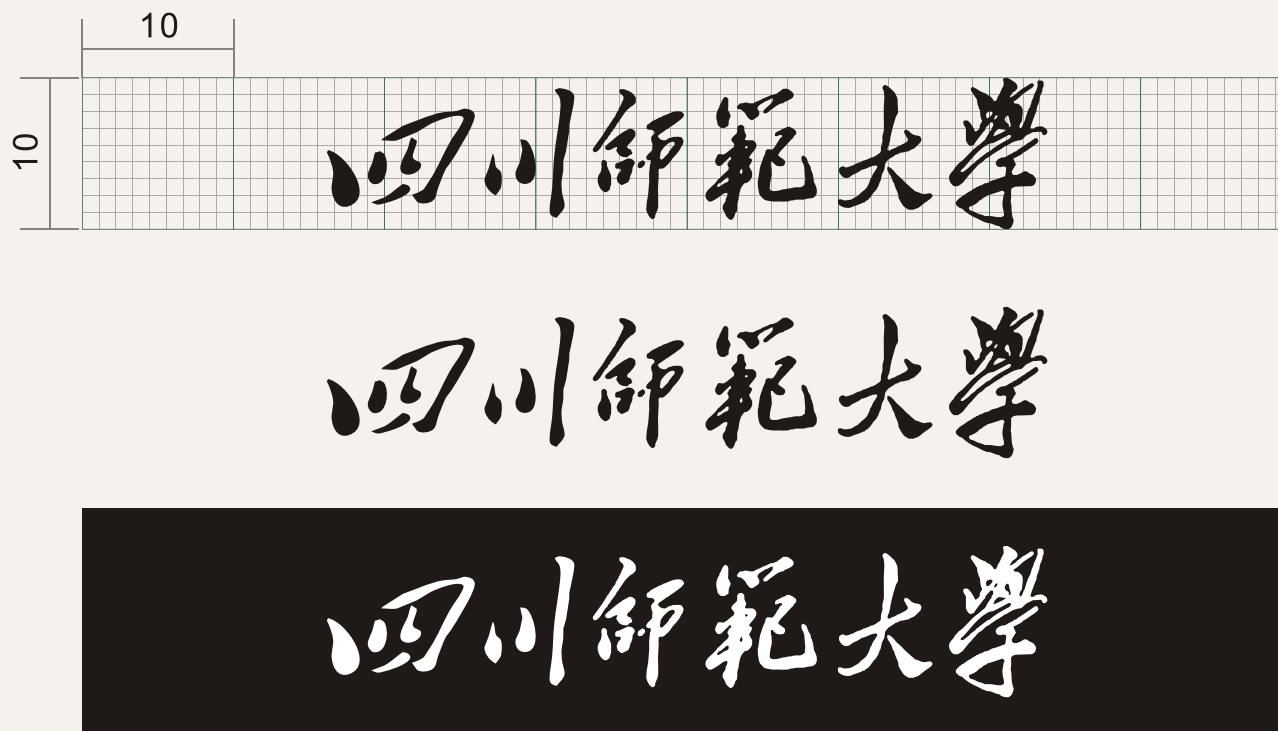 10
10
四川師範大學
四川師範大學
四川師範大學